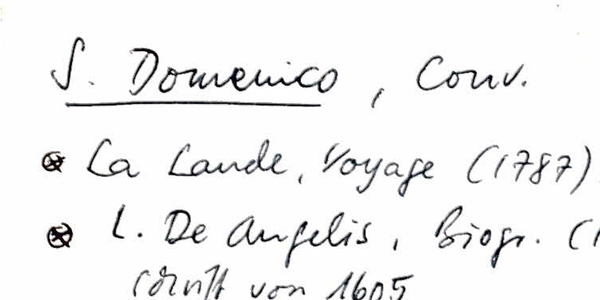 S. Domenico, Conv.
La Lande, Voyage (1787)
L. De Angelis, Biogr. (1
schrift von 1605